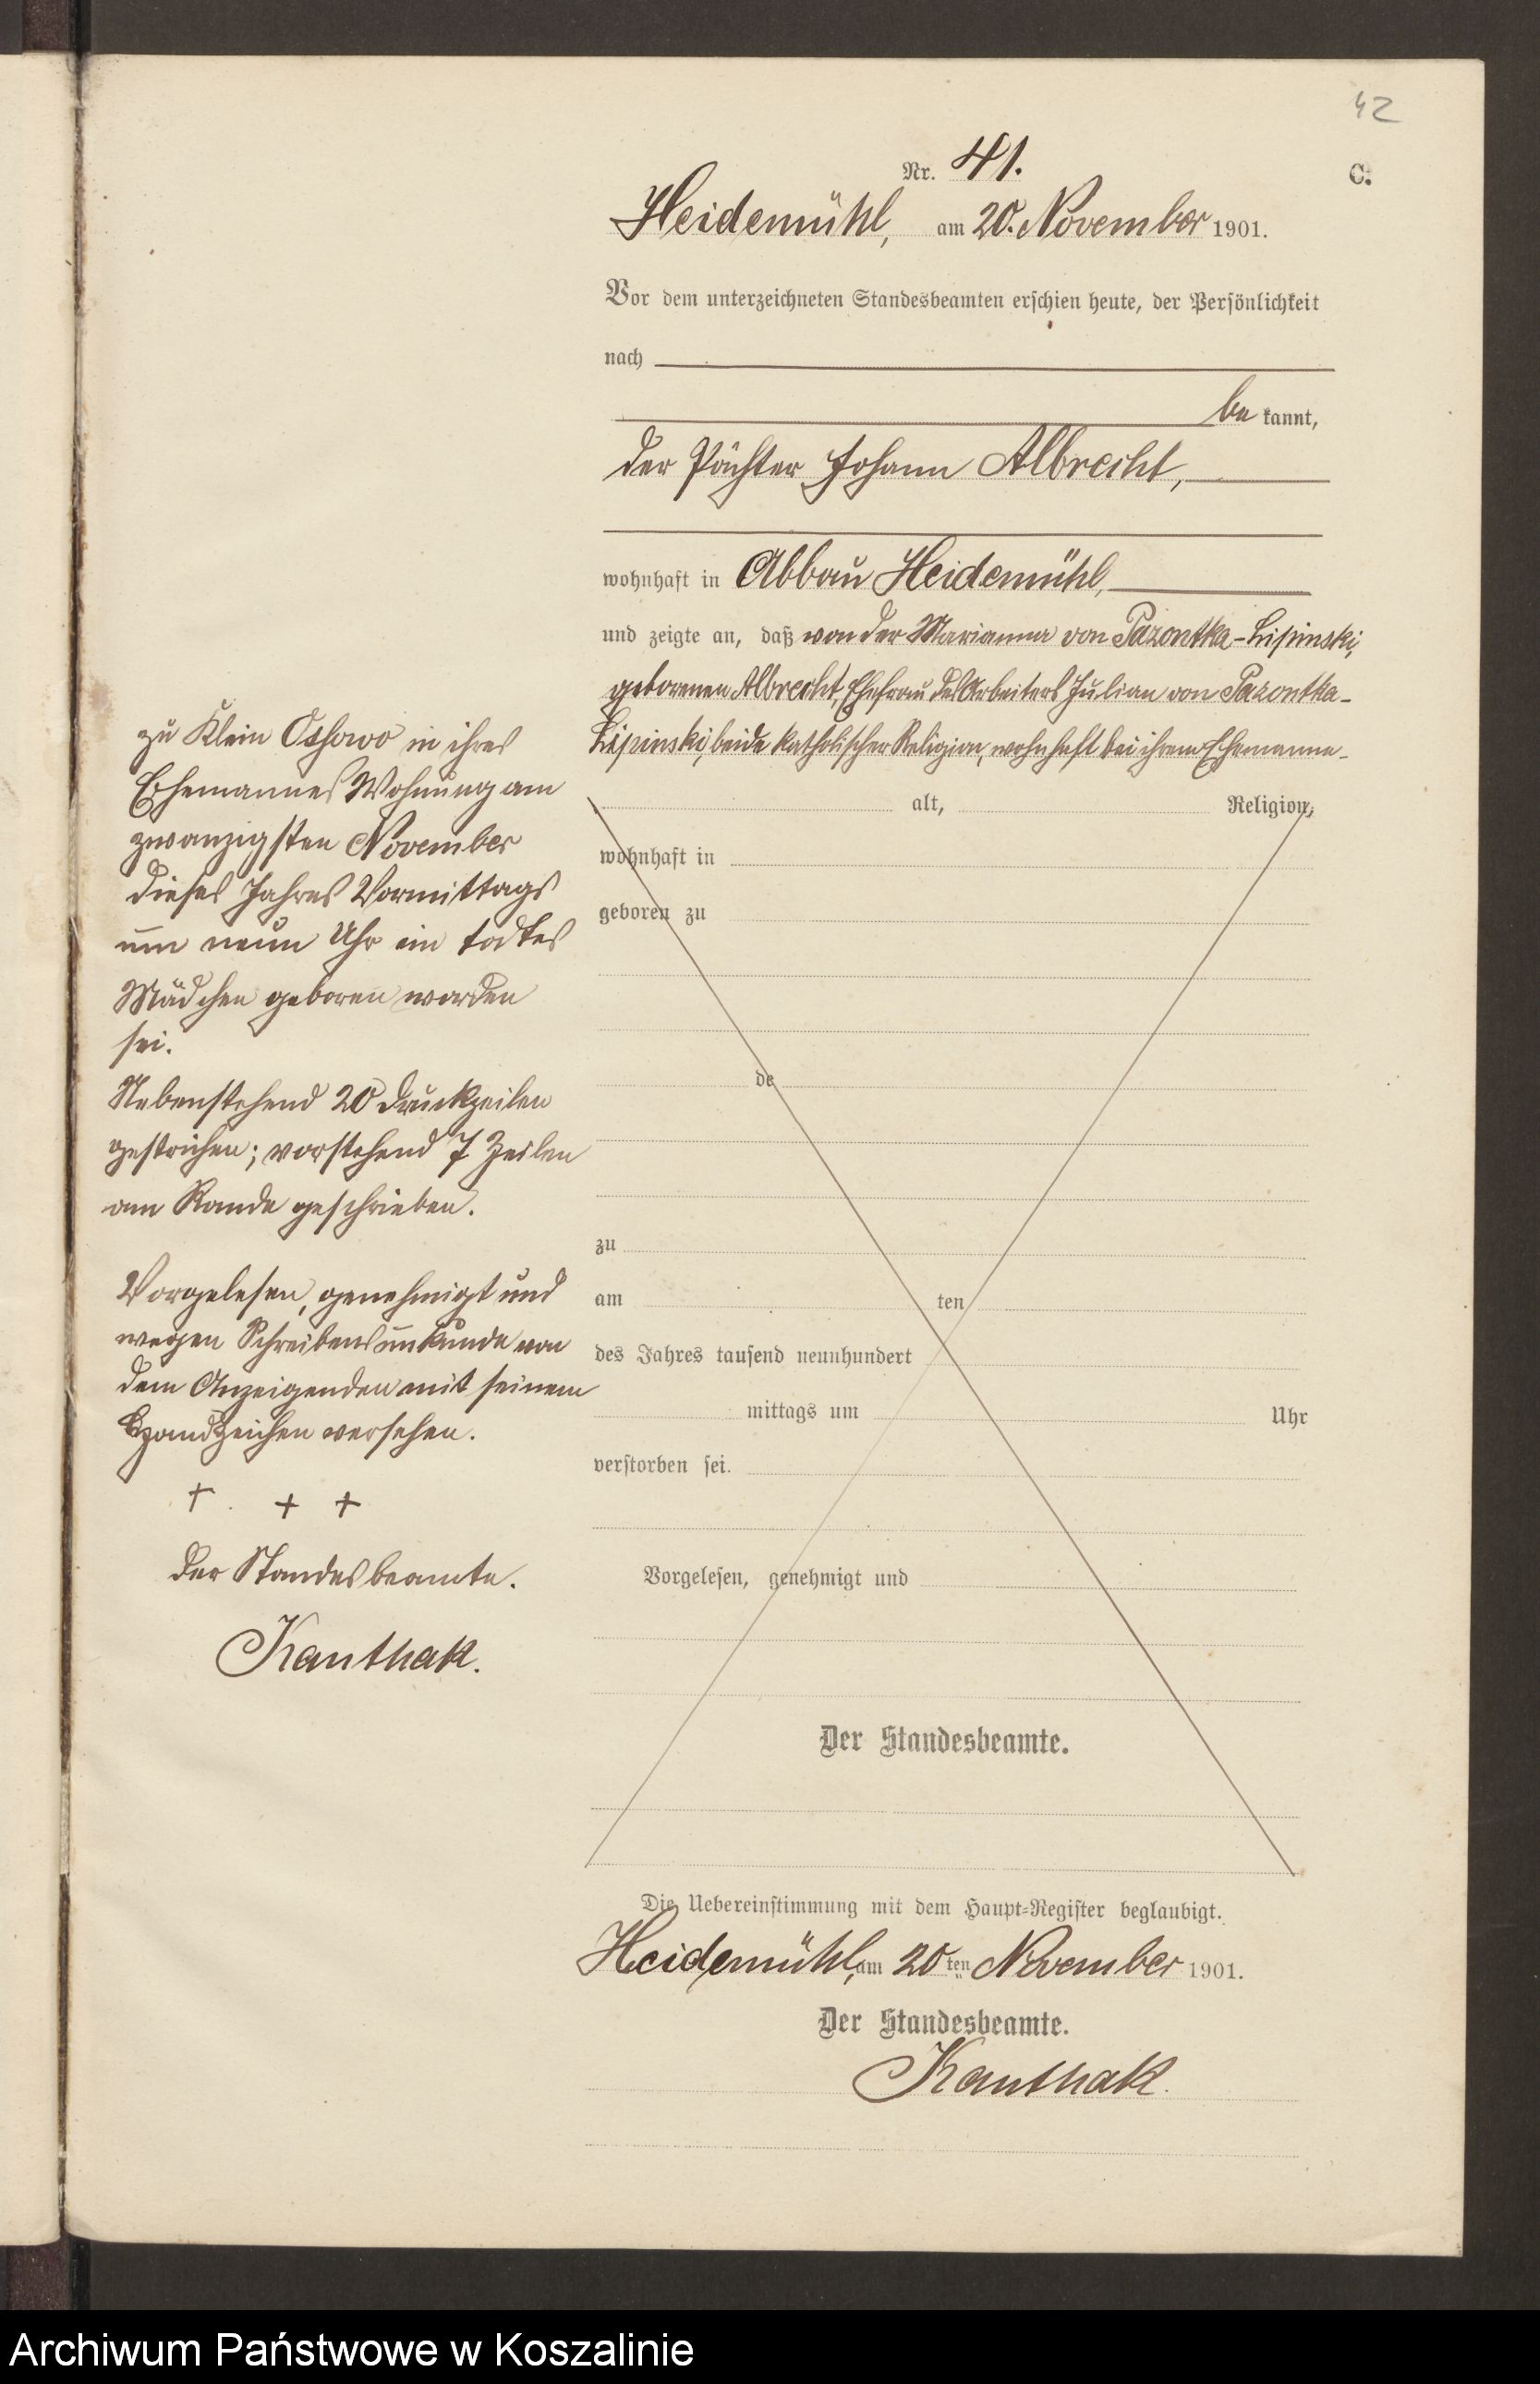 42
Nr. 41.
C.
Heidemühl, am 20. November 1901.
Vor dem unterzeichneten Standesbeamten erschien heute, der Persönlichkeit
nach
be kannt,
der Pächter Johann Albrecht,
wohnhaft in Abbau Heidemühl,
und zeigte an, daß von der Marianna von Pazontka-Lipinski,
geborenen Albrecht, Ehefrau des Arbeiters Julian von Pazontka-
Lipinski, beide katholischer Religion, wohnhaft bei ihrem Ehemanne
zu Klein Ossowo in ihres
Ehemannes Wohnung am
zwanzigsten November
dieses Jahres Vormittags
um neun Uhr ein todtes
Mädchen geboren worden
sei.
Nebenstehend 20 Druckzeilen
gestrichen; vorstehend 7 Zeilen
am Rande geschrieben.
Vorgelesen, genehmigt und
wegen Schreibensunkunde von
dem Anzeigenden mit seinem
Handzeichen versehen.
+ + +
Der Standesbeamte.
Kanthak.
alt, Religion,
wohnhaft in
geboren zu
de
zu
am ten
des Jahres tausend neunhundert
mittags um Uhr
verstorben sei.
Vorgelesen, genehmigt und
Der Standesbeamte.
Die Uebereinstimmung mit dem Haupt-Register beglaubigt.
Heidemühl, am 20ten November 1901.
Der Standesbeamte.
Kanthak.
Archiwum Państwowe w Koszalinie